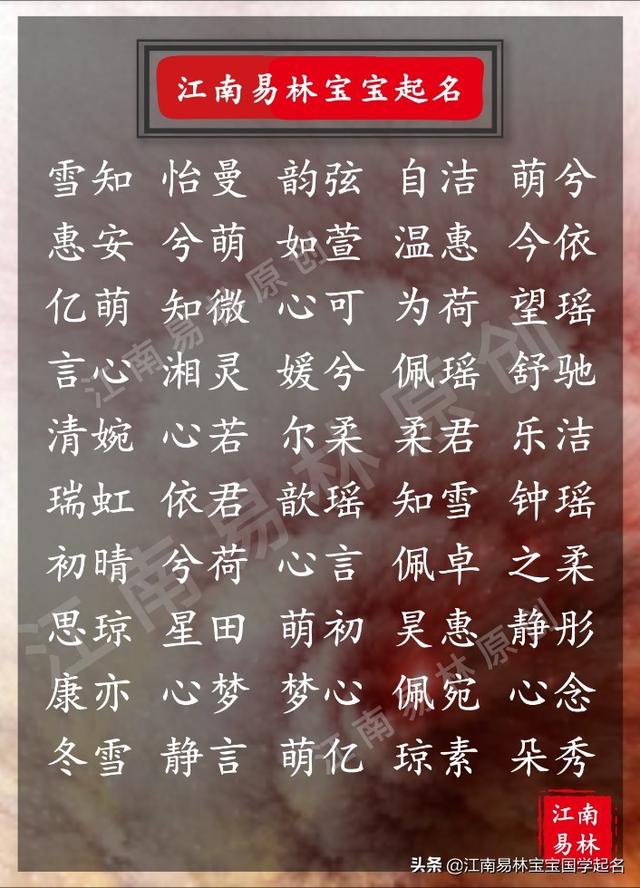 江南易林宝宝起名
雪知 怡曼 韵弦 自洁 萌兮
惠安 兮萌 如萱 温惠 今依
亿萌 知微 心可 为荷 望瑶
言心 湘灵 媛兮 佩瑶 舒驰
清婉 心若 尔柔 柔君 乐洁
瑞虹 依君 歆瑶 知雪 钟瑶
初晴 兮荷 心言 佩卓 之柔
思琼 星田 萌初 昊惠 静彤
康亦 心梦 梦心 佩宛 心念
冬雪 静言 萌亿 琼素 朵秀
江南易林原创
江南易林原创
江南易林原创
江南
易林
头条 @江南易林宝宝国学起名